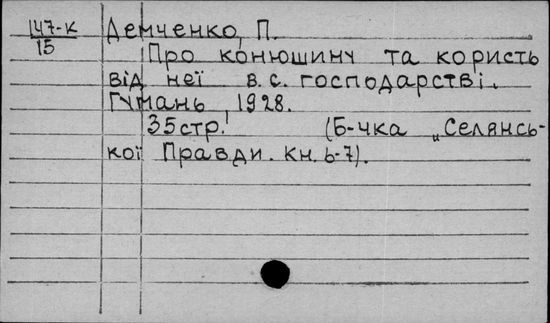 147-К Демченко, П.
15
Про конюшину та користь
від неї в.с. господарстві.
Гумань 1928.
35стр. (Б-чка „Селянсь-
кої Правди. кн. 6-7).